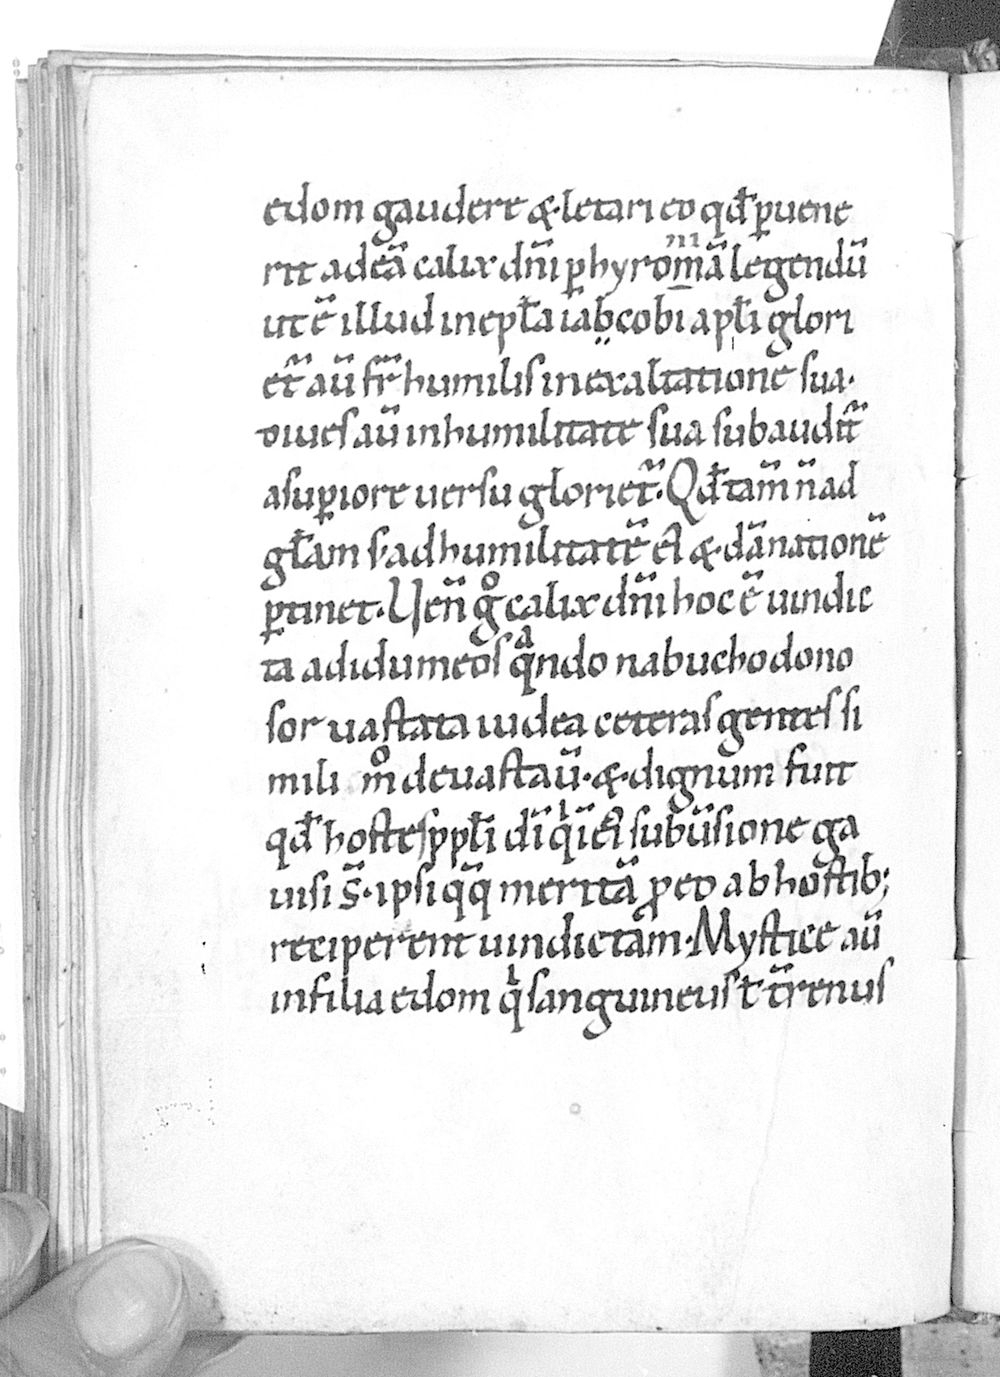 edom gaudere &·letari eo qđ ꝑuene
rit ad eã calix dñi ꝑ hyromã legendũ
ut ẽ illud in epła iabcobi apłi glori
et̃ aũ fr̃ humilis in exaltatione sua·
diues aũ in humilitate sua subaudit̃
a suꝑiore uersu gloriet̃· Qđ tam̃ ñ ad
gła͞m s· ad humilitatẽ eí &· dãnationẽ
ꝑtinet· Uen̄ gͦ calix dñi hoc ẽ uindic
ta ad idumeos qͣndo nabuchodono
sor uastata iudea ceteras gentes si
mili mͦ deuastaũ· &· dignum fuit
qđ hostes ppłi dĩ qͥ ĩ eí subũsione ga
uisi s̃· ipsi qq̃ meritã ꝓ eo ab hostib;
reciperent uindictam· Mystice aũ
in filia edom qͥ sanguineus ł tr̃enus